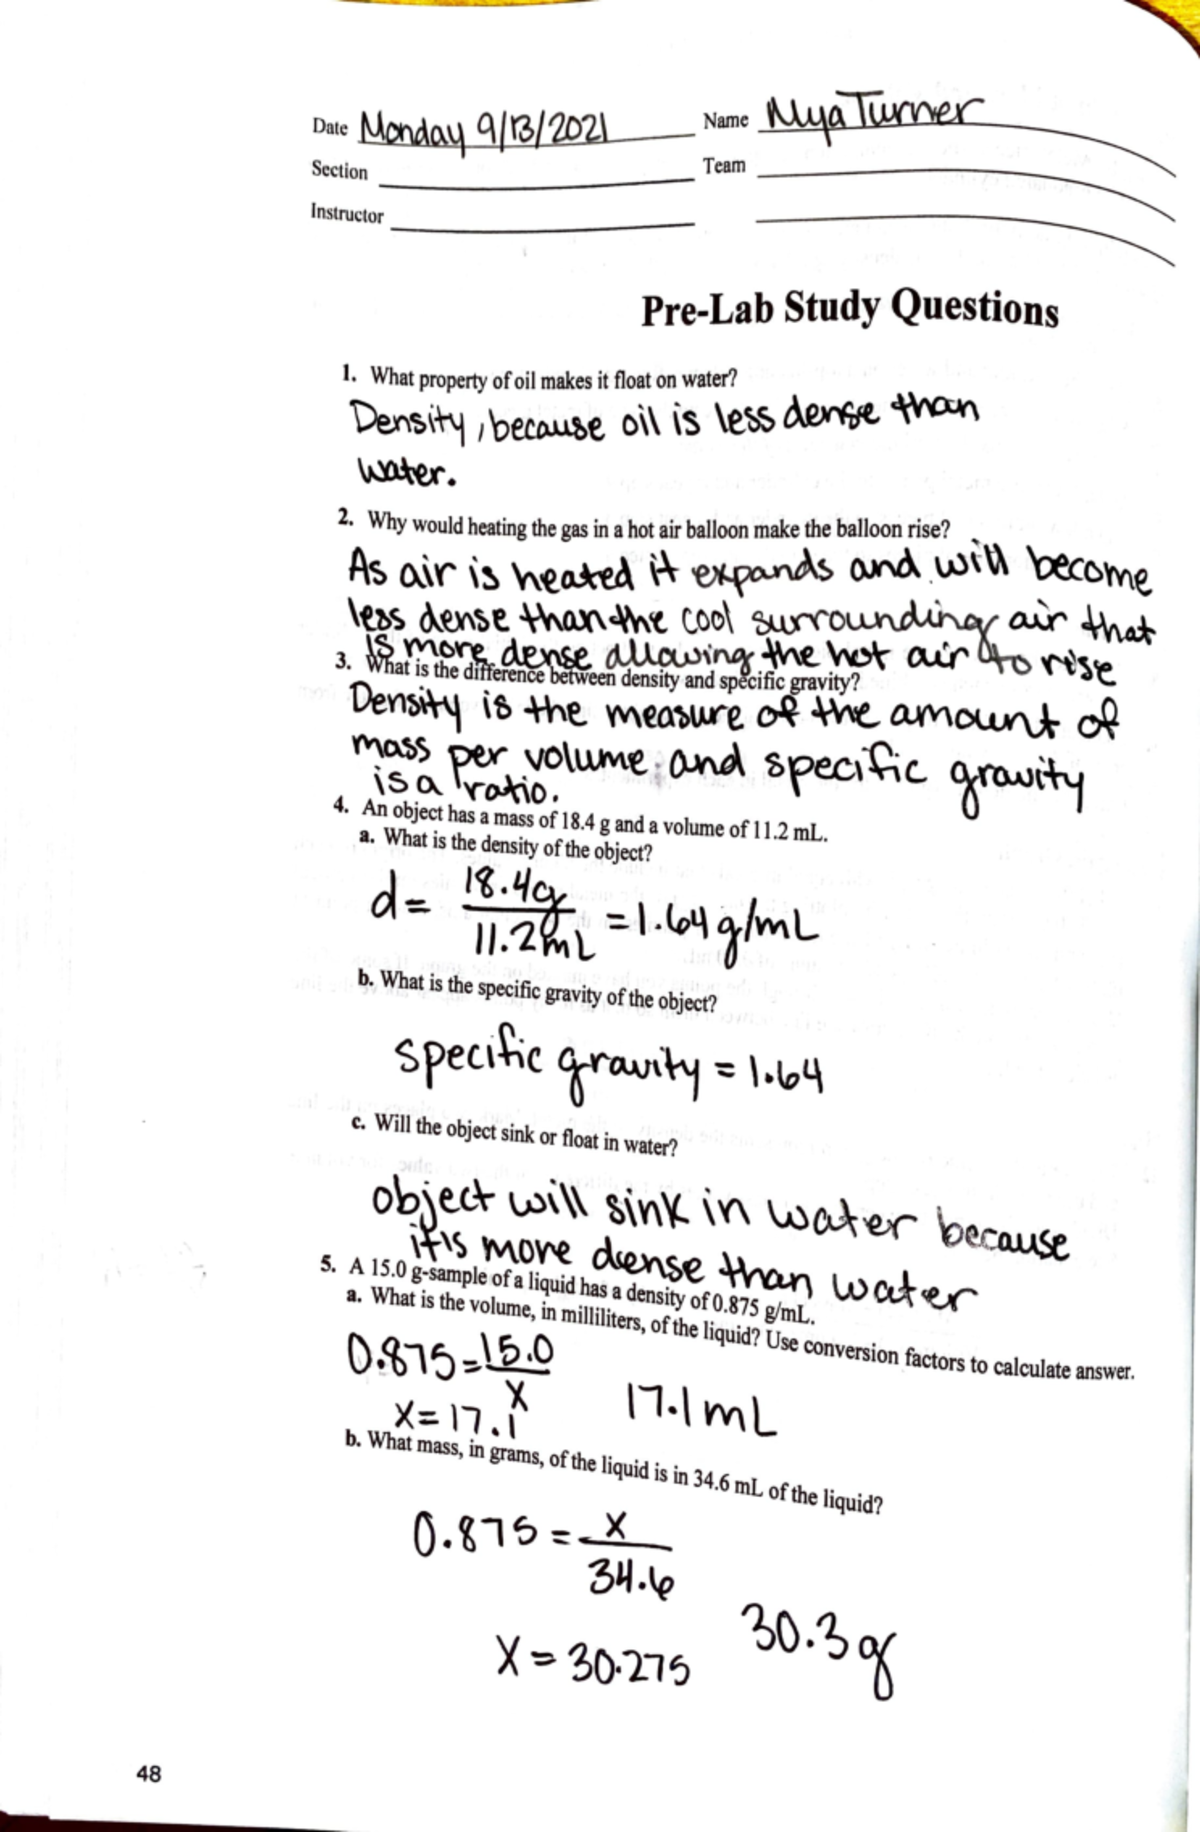 Date Monday 9/13/2021 Name Mya Turner
Section Team
Instructor
Pre-Lab Study Questions
1. What property of oil makes it float on water?
Density, because oil is less dense than
water.
2. Why would heating the gas in a hot air balloon make the balloon rise?
As air is heated it expands and will become
less dense than the cool surrounding air that
is more dense allowing the hot air to rise
3. What is the difference between density and specific gravity?
Density is the measure of the amount of
mass per volume and specific gravity
is a ratio.
4. An object has a mass of 18.4 g and a volume of 11.2 mL.
a. What is the density of the object?
d = 18.4g
= 1.64 g/mL
11.2mL
b. What is the specific gravity of the object?
specific gravity = 1.64
c. Will the object sink or float in water?
object will sink in water because
it is more dense than water
5. A 15.0 g-sample of a liquid has a density of 0.875 g/mL.
a. What is the volume, in milliliters, of the liquid? Use conversion factors to calculate answer.
0.875 = 15.0
x
x = 17.1 17.1 mL
b. What mass, in grams, of the liquid is in 34.6 mL of the liquid?
0.875 = x
34.6
x = 30.275 30.3g
48